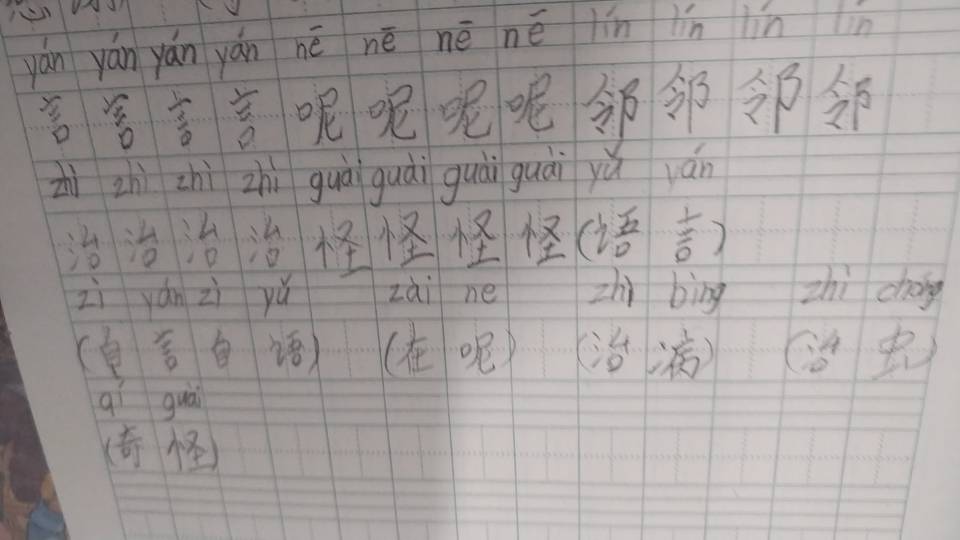 yán yán yán yán nē nē nē nē lín lín lín lín
言 言 言 言 呢 呢 呢 呢 邻 邻 邻 邻
zhì zhì zhì zhì guài guài guài guài yǔ yán
治 治 治 治 怪 怪 怪 怪 (语 言)
zì yán zì yǔ zài ne zhì bìng zhì chóng
(自 言 自 语) (在 呢) (治 病) (治 虫)
qí guài
(奇 怪)